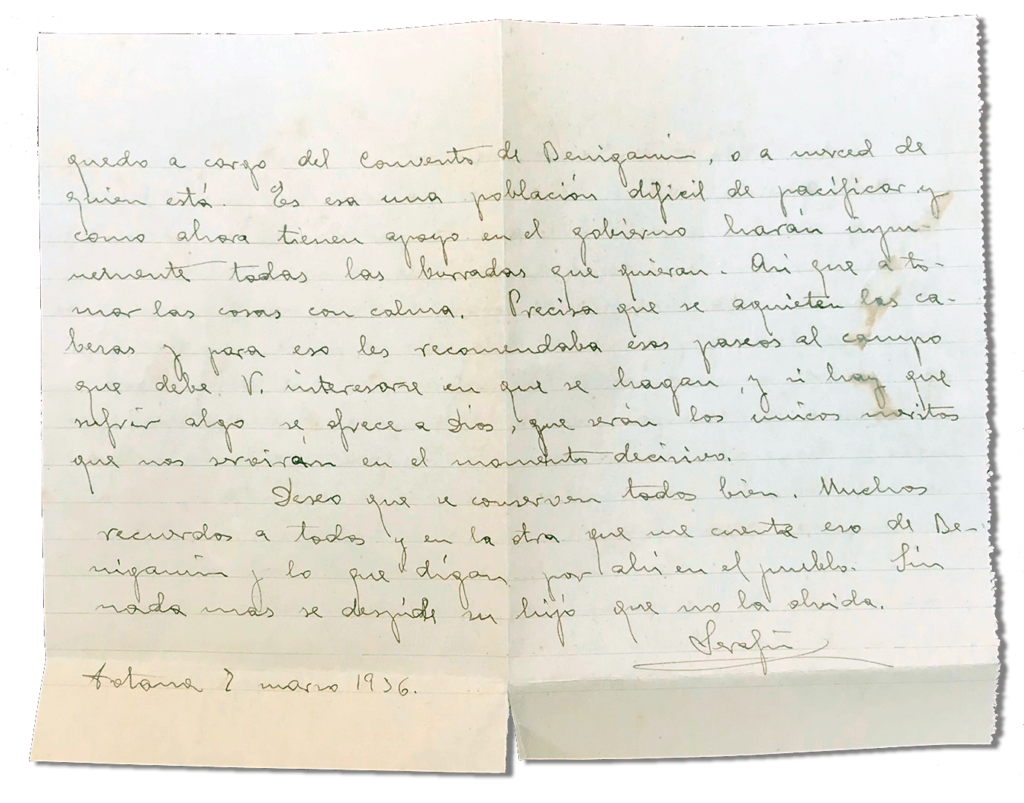 quedo a cargo del Convento de Beniganim, o a merced de
quien está. Es esa una población dificil de pacificar y
como ahora tienen apoyo en el gobierno harán impu-
nemente todas las burradas que quieran. Asi que a to-
mar las cosas con calma. Precisa que se aquieten las ca-
bezas y para eso les recomendaba esos paseos al campo
que debe V. interesarse en que se hagan, y si hay que
sufrir algo se ofrece a Dios, que serán los únicos meritos
que nos servirán en el momento decisivo.
Deseo que se conserven todos bien. Muchos
recuerdos a todos y en la otra que me cuente eso de Be-
niganim y lo que digan por ahi en el pueblo. Sin
nada mas se despide su hijo que no la olvida.
Serafín
2 marzo 1936.